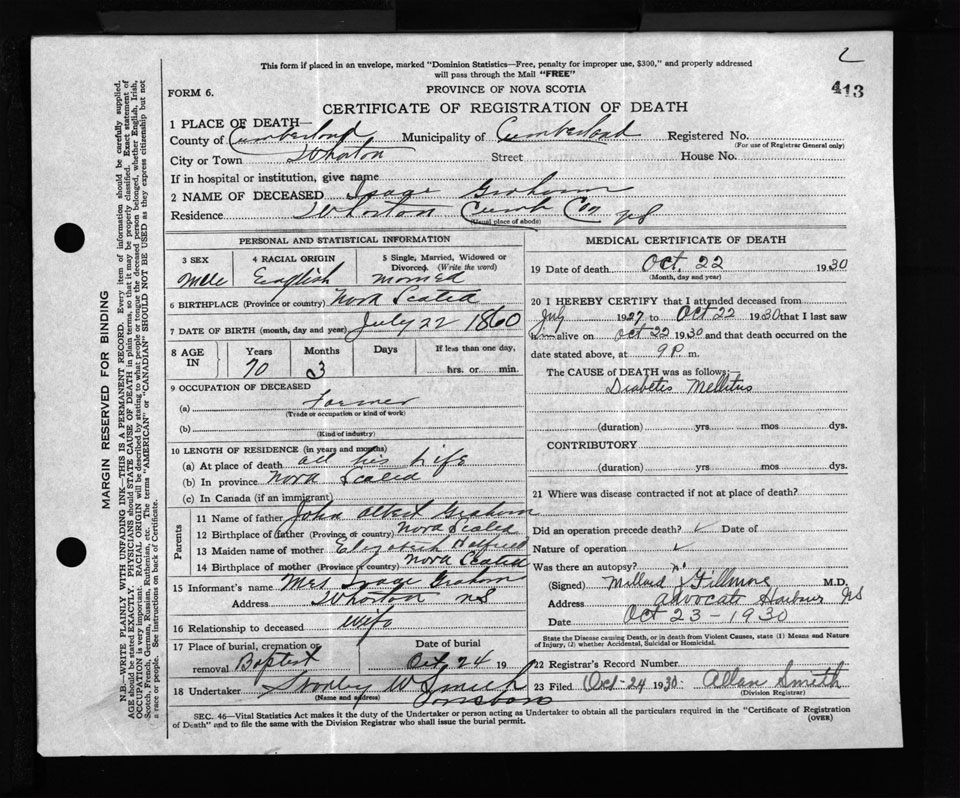 This form if placed in an envelope, marked "Dominion Statistics—Free, penalty for improper use, $300," and properly addressed
will pass through the Mail "FREE"
413
FORM 6.
PROVINCE OF NOVA SCOTIA
CERTIFICATE OF REGISTRATION OF DEATH
1 PLACE OF DEATH—
County of Cumberland Municipality of Cumberland Registered No.
(For use of Registrar General only)
City or Town Whorton Street House No.
If in hospital or institution, give name
2 NAME OF DECEASED Isaac Graham
Residence Whorton Cumb Co NS
(Usual place of abode)
PERSONAL AND STATISTICAL INFORMATION
3 SEX
Male
4 RACIAL ORIGIN
English
5 Single, Married, Widowed or
Divorced. (Write the word)
Married
6 BIRTHPLACE (Province or country) Nova Scotia
7 DATE OF BIRTH (month, day and year) July 22 1860
8 AGE IN
Years Months Days If less than one day,
70 3 hrs. or min.
9 OCCUPATION OF DECEASED
(a) Farmer
(Trade or occupation or kind of work)
(b)
(Kind of industry)
10 LENGTH OF RESIDENCE (in years and months)
(a) At place of death all his Life
(b) In province Nova Scotia
(c) In Canada (if an immigrant)
Parents
11 Name of father John Albert Graham
12 Birthplace of father (Province or country) Nova Scotia
13 Maiden name of mother Elizabeth
14 Birthplace of mother (Province or country) Nova Scotia
15 Informant's name Mrs Isaac Graham
Address Whorton NS
16 Relationship to deceased wife
17 Place of burial, cremation or Date of burial
removal Baptist Oct 24 19
18 Undertaker W Smith
(Name and address)
MEDICAL CERTIFICATE OF DEATH
19 Date of death Oct. 22 1930
(Month, day and year)
20 I HEREBY CERTIFY that I attended deceased from
July 1927 to Oct 22 1930 that I last saw
him alive on Oct 22 1930 and that death occurred on the
date stated above, at 9 P. m.
The CAUSE of DEATH was as follows:
Diabetes Mellitus
(duration) yrs mos dys.
CONTRIBUTORY
(duration) yrs mos dys.
21 Where was disease contracted if not at place of death?
Did an operation precede death? ✓ Date of
Nature of operation ✓
Was there an autopsy?
(Signed) Fillmore M.D.
Address Advocate Harbour NS
Date Oct 23-1930
State the Disease causing Death, or in death from Violent Causes, state (1) Means and Nature
of Injury, (2) whether Accidental, Suicidal or Homicidal.
22 Registrar's Record Number
23 Filed Oct-24 1930 Allan Smith
(Division Registrar)
SEC. 46—Vital Statistics Act makes it the duty of the Undertaker or person acting as Undertaker to obtain all the particulars required in the "Certificate of Registration
of Death" and to file the same with the Division Registrar who shall issue the burial permit.
(OVER)
MARGIN RESERVED FOR BINDING
N.B.—WRITE PLAINLY WITH UNFADING INK—THIS IS A PERMANENT RECORD. Every item of information should be carefully supplied.
AGE should be stated EXACTLY. PHYSICIANS should STATE CAUSE OF DEATH in plain terms, so that it may be properly classified. Exact statement of
OCCUPATION is very important. RACIAL ORIGIN will be described by stating to what people or tongue the deceased person belonged, whether English, Irish,
Scotch, French, German, Russian, Ruthenian, etc. The terms "AMERICAN" or "CANADIAN" SHOULD NOT BE USED as they express citizenship but not
a race or people. See instructions on back of Certificate.